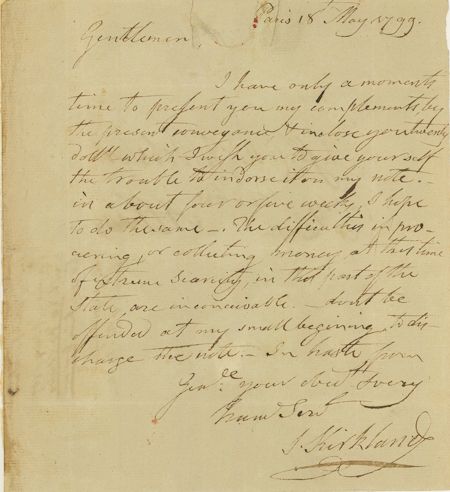 Paris 18 May 1799.
Gentlemen,
I have only a moments
time to present you my complements by
the present conveyance & inclose you twenty
doll.s which I wish you to give yourself
the trouble to indorse it on my note. –
in about four or five weeks, I hope
to do the same –. The difficulties in pro-
curing, or collecting money, at this time
of extreme scarcity, in this part of the
State, are inconceivable. – dont be
offended at my small begining to dis-
charge the note. – In haste from
your obed.t & very
hum Serv.t
S. Kirkland